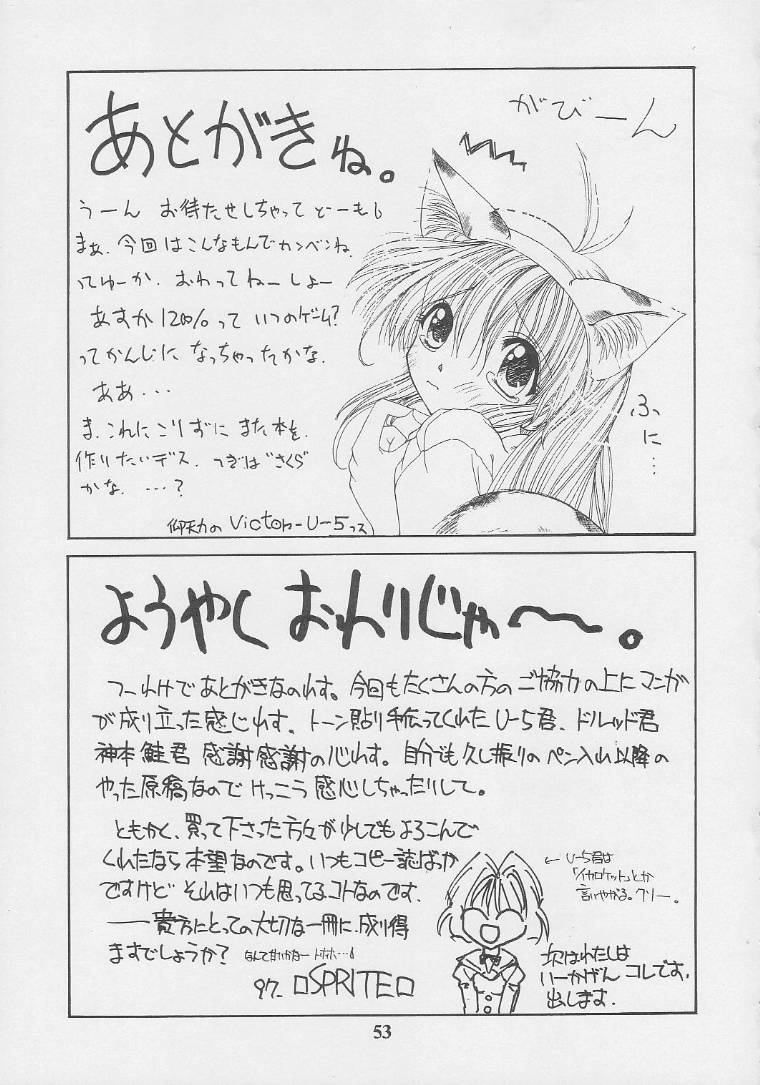 あとがきね。
がびーん
うーん お待たせしちゃって どーも
まぁ、今回はこんなもんでカンベンね
ってゆーか、おわってねーしょー
あすか120%って いつのゲーム?
ってかんじに なっちゃったかな。
ああ・・・
ま、これにこりずに また本を
作りたいデス、つぎは"さくら"
かな、・・・?
ふに…
Victor-U-5っス
ようやく おわりじゃ〜〜。
つーわけであとがきなのれす。今回もたくさんの方の ご協力の上にマンガ
が成り立った感じれす、トーン貼り手伝ってくれた U-5君、ドルッド君
神本 鮭君 感謝感謝の心れす。自分でも久し振りの ペン入れ以降の
やった原稿なので けっこう 感心しちゃったりして。
ともかく、買って下さった方々が少しでもよろこんで
くれたなら本望なのです。いつもコピー誌ばっか
ですけど それはいつも思ってるコトなのです、
――貴方にとっての大切な一冊に、成り得
ますでしょうか? なんて甘いかなー トホホ…
97_ □SPRITE□
← U-5君は
「イカロケット」とか
言いやがる。クリー。
次はわたしは
いーかげん コレです、
出します、
53